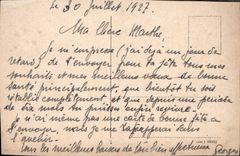 Le 30 Juillet 1927.
Ma Chère Marthe,
Je m'empresse (j'ai déjà un jour de
retard) de t'envoyer pour ta fête tous mes
souhaits et mes meilleurs vœux de bonne
santé principalement, que bientôt tu sois
rétablie complètement et que depuis une période
de dix mois tu puisses enfin
je n'ai même pas une carte de bonne fête à
t'envoyer, mais je me rattraperai dans
l'
meilleurs baisers de
Georges